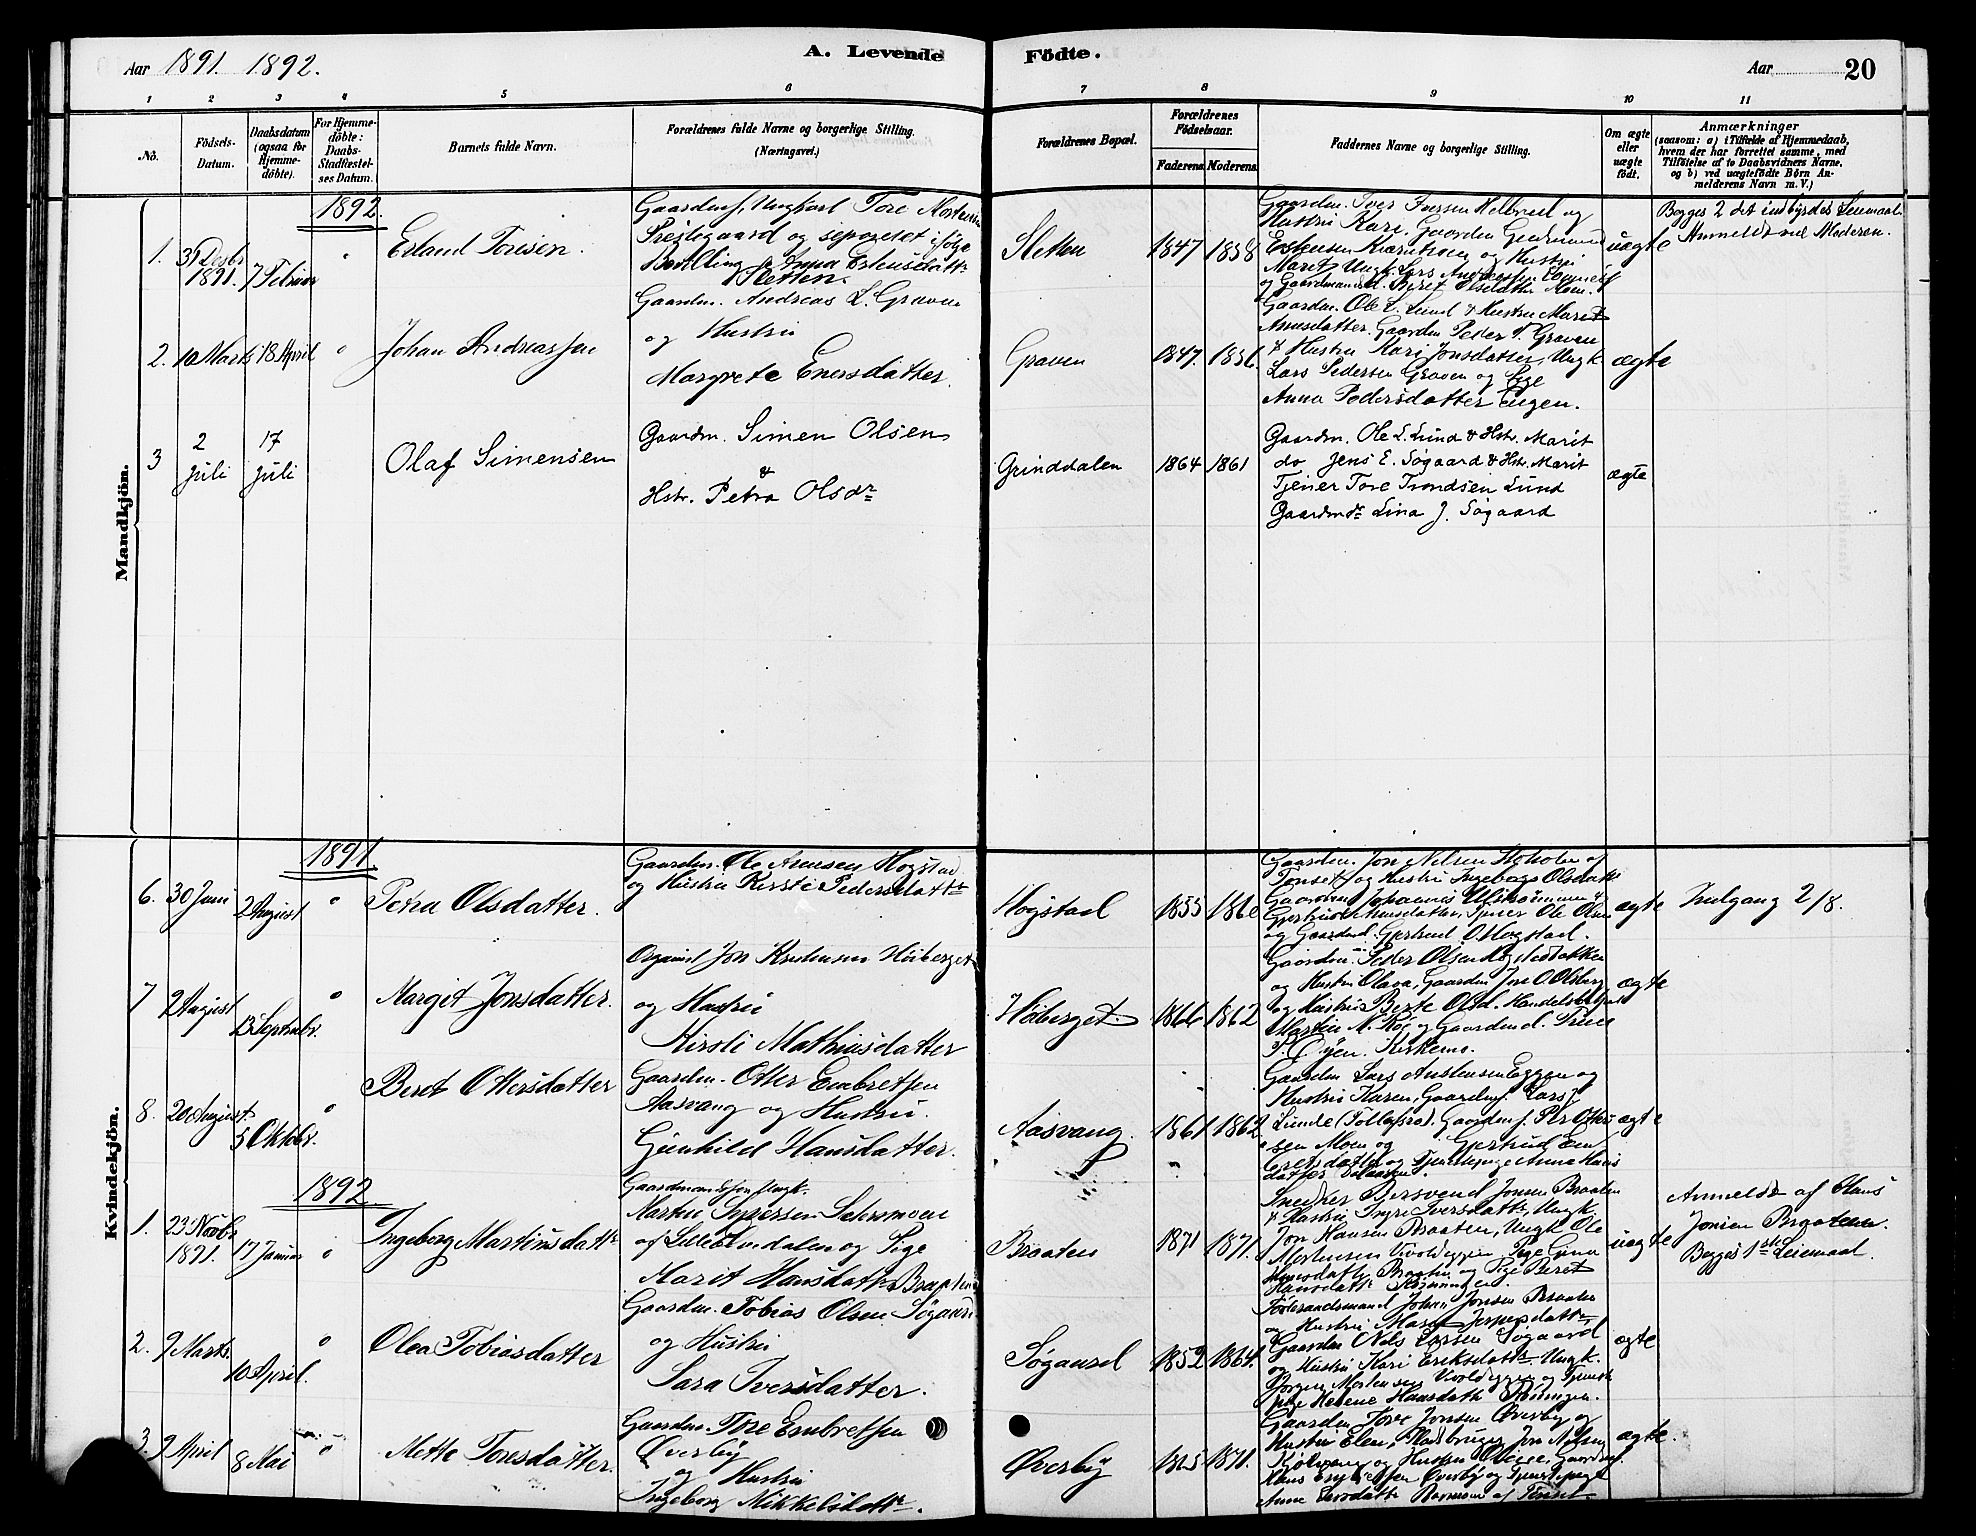 Aar 1891. 1892.
A. Levende Födte.
Aar 20
1 2 3 4 5 6 7 8 9 10 11
No.
Födsels-Datum.
Daabsdatum (ogsaa for Hjemme-döbte).
For Hjemme-döbte: Daabs-Stadfæstel-ses Datum.
Barnets fulde Navn.
Forældrenes fulde Navne og borgerlige Stilling. (Næringsvei.)
Forældrenes Bopæl.
Forældrenes Födselsaar.
Faderens Moderens
Faddernes Navne og borgerlige Stilling.
Om ægte eller uægte födt.
Anmærkninger
(saasom: a) i Tilfælde af Hjemmedaab,
hvem der har forrettet samme, med
Tilföielse af to Daabsvidners Navne,
og b) ved uægtefödte Börn An-
melderens Navn m. V.)
Mandkjön.
1892.
1. 31 Decbr 1891. 7 Februar " Erland Toresen.
Gaardmf. Ungkarl Tore Mortensen
og separeret ifølge
Bevilling Anna Estensdattr
Sletten.
Sletten 1847 1858
Gaardm. Iver Iversen og
Hustru Kari. Gaardm Gudmund
Estensen og Hustru
Maret, Ungk. Lars Andersen
og Gaardmandsd. Beret Moen.
uægte
Begges 2det indbyrdes Leiemaal.
Anmeldt ved Moderen.
2. 10 Marts 18 April " Johan Andreassen
Gaardm. Andreas L. Graven
og Hustru
Margrete Enersdatter.
Graven 1847. 1856.
Gaardm. Ole L. Lund & Hustru Marit
Arnesdatter. Gaardm Peder T. Graven
& Hustru Kari Jonsdatter, Ungk
Lars Pedersen Graven og Pige
Anna Pedersdatter Engen.
ægte
3 2 Juli 17 Juli Olaf Simensen
Gaardm. Simen Olsen
&
Hstr. Petra Olsdr
Grinddalen 1864 1861
Gaardm. Ole L. Lund & Hstr. Marit
do Jens E. Søgaard & Hstr. Marit
Tjener Tore Trondsen Lund
Gaardmdr Lina J. Søgaard
ægte
Kvindekjön.
1891.
6. 30 Juni 2 August " Petra Olsdatter.
Gaardm. Ole Arnesen Hogstad
og Hustru Kirsti Pedersdattr
Hogstad 1855 1860
Gaardm. Jon Nilsen af
Tønset og Hustru Ingeborg Olsdatt
Gaardm Johannis &
Gjertrud Arnesdatter, Tjener Ole Olsen
og Gaardmd. Gjertrud O. Hogstad.
ægte
Indgang 2/8.
7 2 August 13 Septembr. " Margit Jonsdatter.
Jon Høiberget
og Hustru
Kirsti Mathiasdatter
Høiberget 1866 1862
Gaardm. Peder Olsen
og Hustru Olava, Gaardm Jon O.
og Hustru Berte Olsd. Handelsb
Martin M. Røe og Gaardmd. Trine
P. Øyen.
ægte
8. 20 August 5 Oktobr. " Beret Ottersdatter
Gaardm. Otter Embretsen
Aasvang og Hustru
Gunhild Hansdatter.
Aasvang. 1861 1862
Gaardm Lars Austensen Eggen og
Hustru Karen, Gaardmf. Lars J
Lunde Gaardmf. Per Otter
sen Moen og Gjertrud Em
bretsdatter og Tjenestepige Anna Hans
datter
ægte
1892
1. 23 Novbr 1891. 17 Januar " Ingeborg Martinsdattr
Gaardmandssøn Ungk.
Martin Iversen
af Lille Elvedalen og Pige
Marit Hansdattr Braaten
Braaten 1871 1871.
Snedker Bersvend Jonsen Braaten
& Hustru Ingri Iversdattr, Ungk.
Jon Hansen Braaten, Ungk Ole
Mortensen Pige Gina
Hansdattr Braaten og Pige Beret
Hansdattr
uægte
Anmeldt af Hans
Jonsen Braaten.
Begges 1ste Leiemaal.
2. 9 Marts. 10 April. " Olea Tobiasdatter
Gaardm. Tobias Olsen Søgaard
og Hustru
Sara Iversdatter.
Søgaard 1852 1864.
Føderaadsmand Johan Jonsen Braaten
og Hustru Marit
Gaardm Nils Larsen Søgaard
og Hustru Kari Eriksdattr. Ungk.
Jørgen Mortensen og Tjeneste
pige Helene Hansdattr
ægte
3. 9 April 8 Mai " Mette Toresdatter.
Gaardm. Tore Embretsen
Øverby
og Hustru
Ingeborg Nikkelsdattr.
Øverby 1871.
Gaardm Tore Jonsen Øverby og
Hustru Elen, Pladsbruger Jon Nilsen
og Hustru Gaardmf.
Hans Embretsen Øverby og Tjenestepige
Anne af Tønset.
ægte.